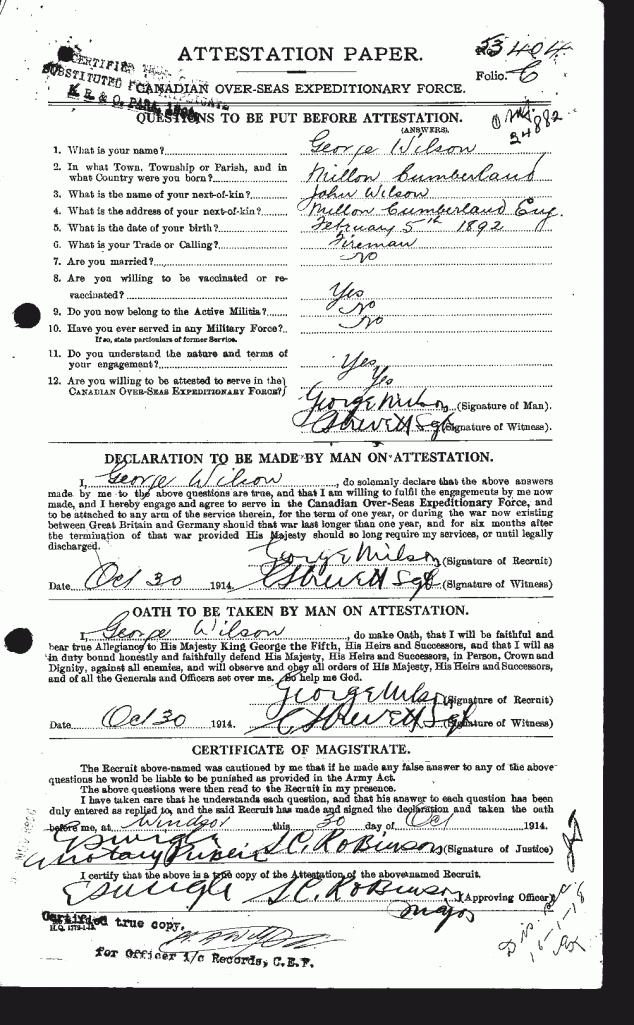 ATTESTATION PAPER.
No. 53404
Folio. C
CERTIFIED
SUBSTITUTED FOR
K. R. & O. PARA.
CANADIAN OVER-SEAS EXPEDITIONARY FORCE.
QUESTIONS TO BE PUT BEFORE ATTESTATION.
(ANSWERS).
24882
1. What is your name? George Wilson
2. In what Town, Township or Parish, and in
what Country were you born? Millon Cumberland
3. What is the name of your next-of-kin? John Wilson
4. What is the address of your next-of-kin? Millon Cumberland Eng.
5. What is the date of your birth? February 5th 1892
6. What is your Trade or Calling? Fireman
7. Are you married? No
8. Are you willing to be vaccinated or re-
vaccinated? Yes
9. Do you now belong to the Active Militia? No
10. Have you ever served in any Military Force? No
If so, state particulars of former Service.
11. Do you understand the nature and terms of
your engagement? Yes
12. Are you willing to be attested to serve in the Yes
CANADIAN OVER-SEAS EXPEDITIONARY FORCE?
George Wilson (Signature of Man).
Sgt (Signature of Witness).
DECLARATION TO BE MADE BY MAN ON ATTESTATION.
I, George Wilson, do solemnly declare that the above answers
made by me to the above questions are true, and that I am willing to fulfil the engagements by me now
made, and I hereby engage and agree to serve in the Canadian Over-Seas Expeditionary Force, and
to be attached to any arm of the service therein, for the term of one year, or during the war now existing
between Great Britain and Germany should that war last longer than one year, and for six months after
the termination of that war provided His Majesty should so long require my services, or until legally
discharged.
George Wilson (Signature of Recruit)
Date Oct 30 1914. Sgt (Signature of Witness)
OATH TO BE TAKEN BY MAN ON ATTESTATION.
I, George Wilson, do make Oath, that I will be faithful and
bear true Allegiance to His Majesty King George the Fifth, His Heirs and Successors, and that I will as
in duty bound honestly and faithfully defend His Majesty, His Heirs and Successors, in Person, Crown and
Dignity, against all enemies, and will observe and obey all orders of His Majesty, His Heirs and Successors,
and of all the Generals and Officers set over me. So help me God.
George Wilson (Signature of Recruit)
Date Oct 30 1914. Sgt (Signature of Witness)
CERTIFICATE OF MAGISTRATE.
The Recruit above-named was cautioned by me that if he made any false answer to any of the above
questions he would be liable to be punished as provided in the Army Act.
The above questions were then read to the Recruit in my presence.
I have taken care that he understands each question, and that his answer to each question has been
duly entered as replied to, and the said Recruit has made and signed the declaration and taken the oath
before me, at Windsor this 30 day of Oct 1914.
S.C. Robinson (Signature of Justice)
a Notary Public
I certify that the above is a true copy of the Attestation of the above-named Recruit.
S.C. Robinson (Approving Officer)
Major
Certified true copy.
for Officer i/c Records, C.E.F.